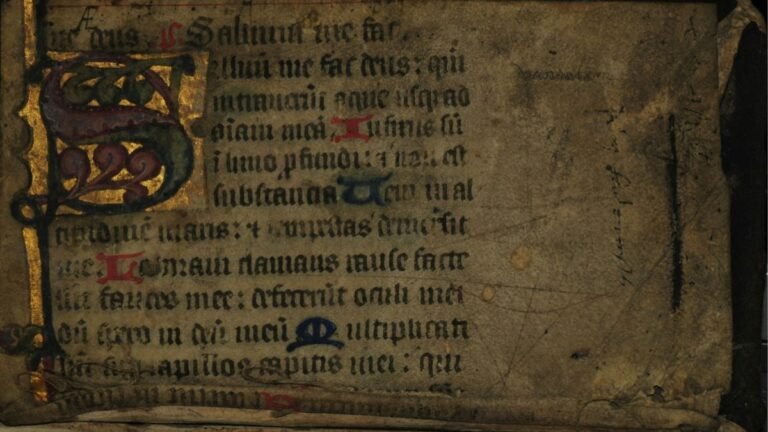 deus. Saluum me fac
Saluū me fac deus: qm̄
intrauerūt aque usq; ad
aīam meā. Infixus sū
ī limo profundi: et non est
substantia. Ueni in al
titudinē maris: et tempestas demersit
me. Laboraui clamans rauce facte
sūt fauces mee: defecerūt oculi mei
dū spero in deū meū. Multiplicati
sūt sup capillos capitis mei: qui